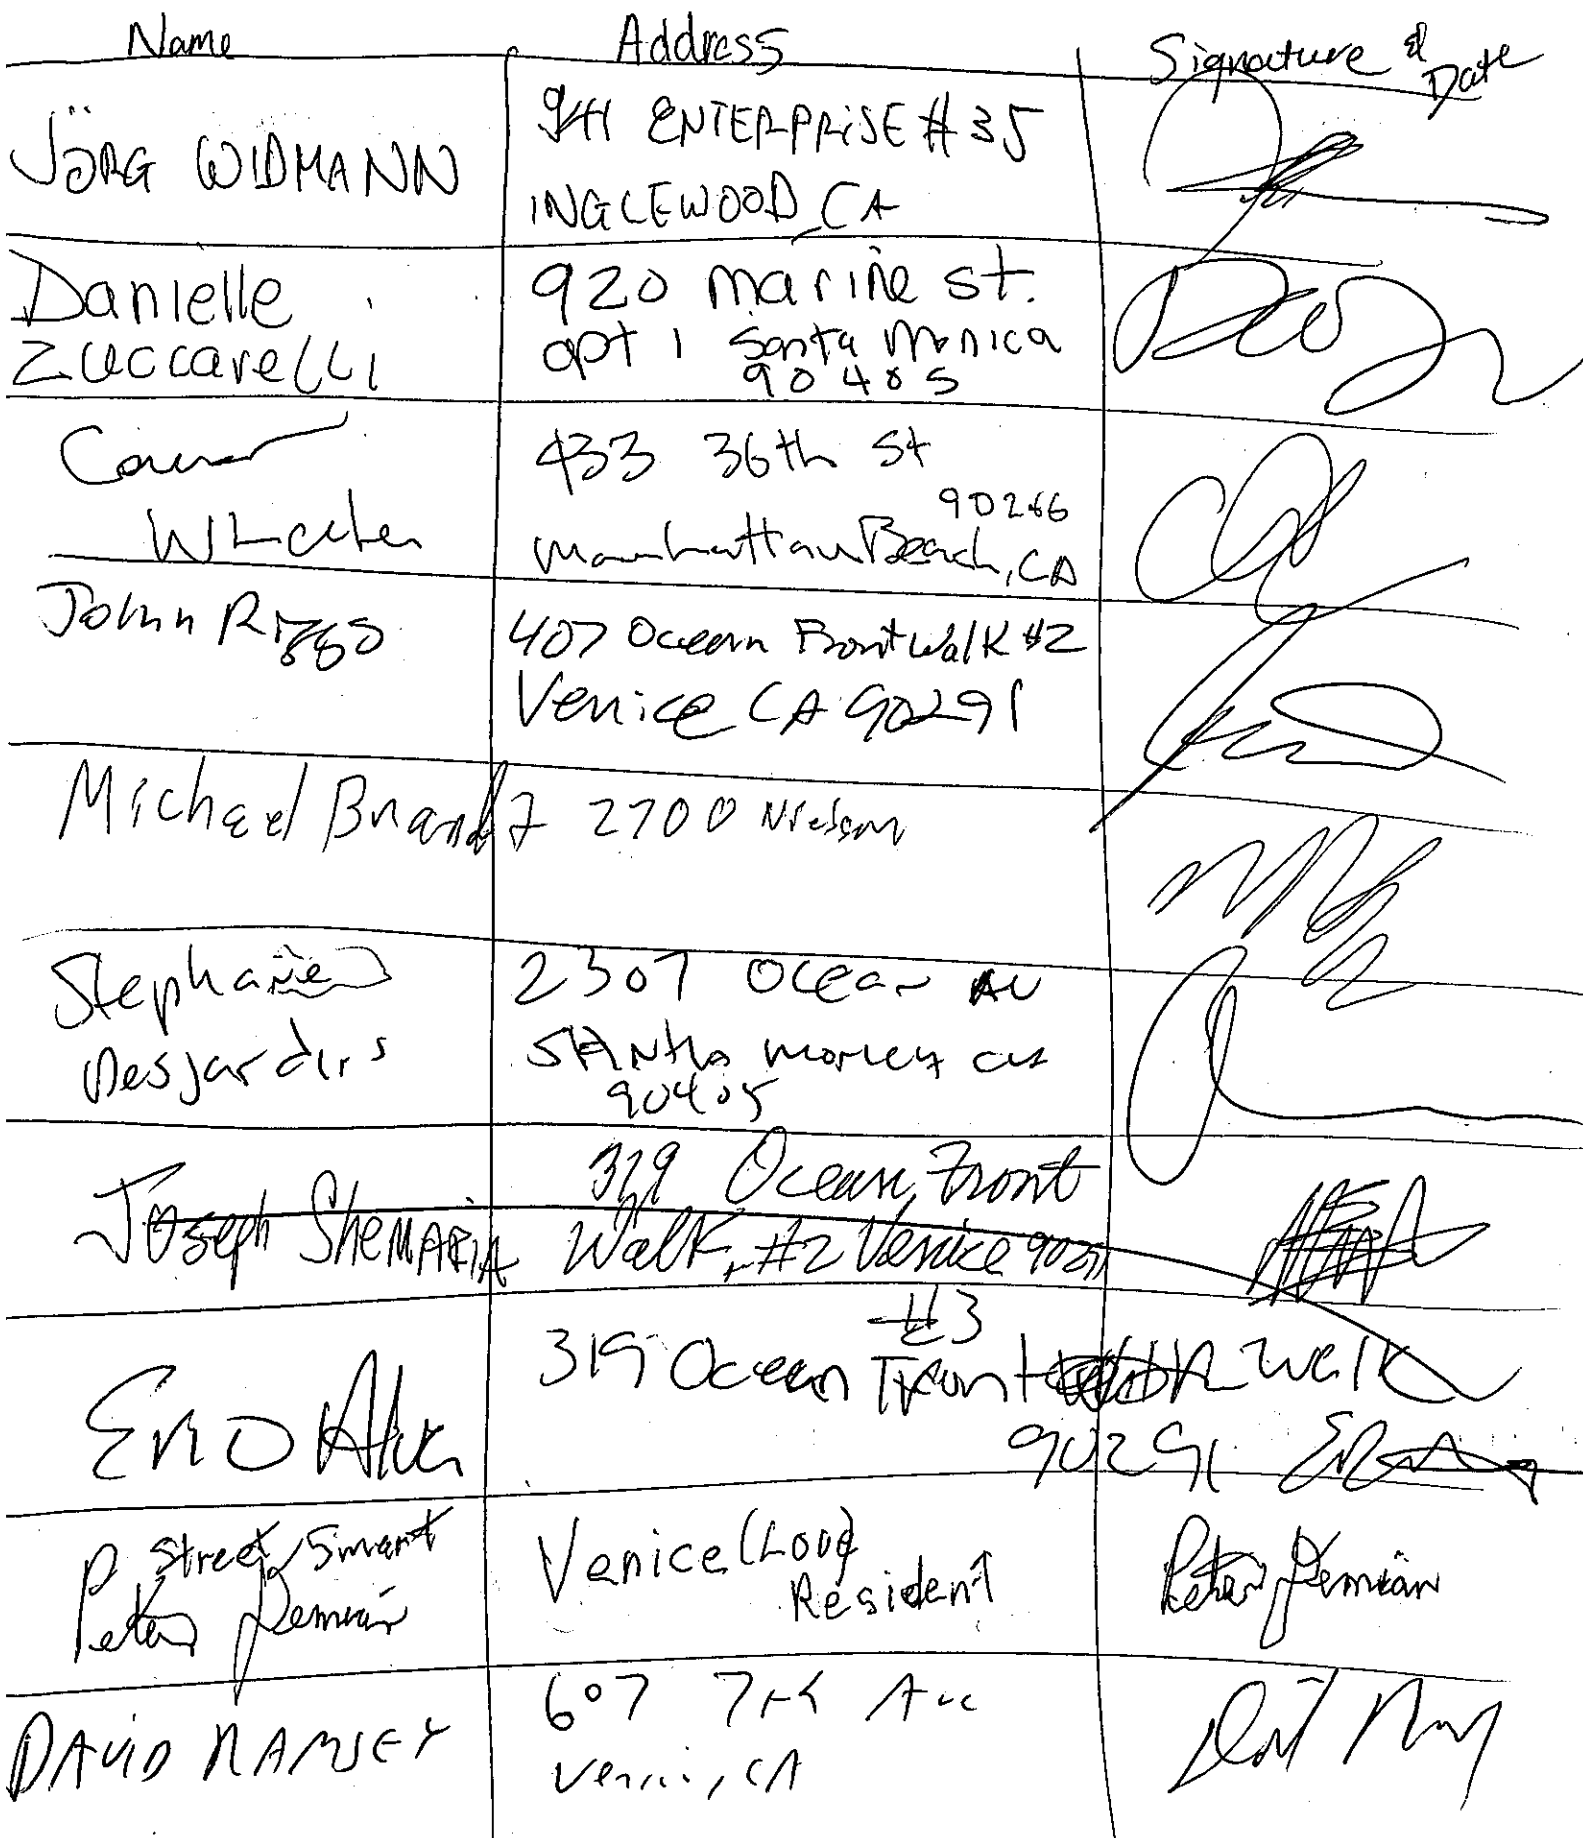 Name Address Signature & Date
JÖRG WIDMANN
941 ENTERPRISE # 35
INGLEWOOD, CA
Danielle
Zuccarelli
920 marine st.
apt 1 Santa Monica
90405
433 36th St
90266
Manhattan Beach, CA
John Riggs
407 Ocean Front Walk #2
Venice CA 90291
Michael Brandt 2700
Stephanie
Desjardins
2307 Ocean AV
90405
Joseph SheMARIA
319 Ocean Front
Walk, #2 Venice 90291
#3
319 Ocean Front Walk
90291
Street Smart
Peter Demian
Venice (Local
Resident)
Peter Demian
DAVID RAMSEY
607 7th Ave
Venice, CA